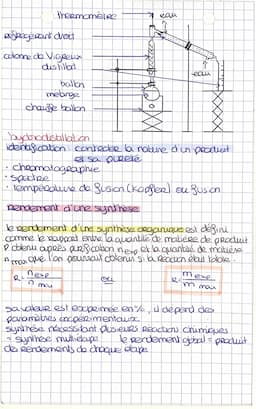 thermomètre
eau
réfrigérant droit
colonne de Vigreux
distillat
eau
ballon
mélange
chauffe ballon
l'hydrodistillation
identification : contrôler la nature d'un produit
et sa pureté
· chromatographie
· spectre
· température de fusion (Köfler) ou fusion
Rendement d'une synthèse
le rendement d'une synthèse organique est défini
comme le rapport entre la quantité de matière de produit
P obtenu après purification n exp et la quantité de matière
n max que l'on pourrait obtenir si la réaction était totale.
R = n exp / n max ou R = m exp / m max
sa valeur est exprimée en %, il dépend des
paramètres expérimentaux
synthèse nécessitant plusieurs réactions chimiques
= synthèse multiétape le rendement global = produit
des rendements de chaque étape